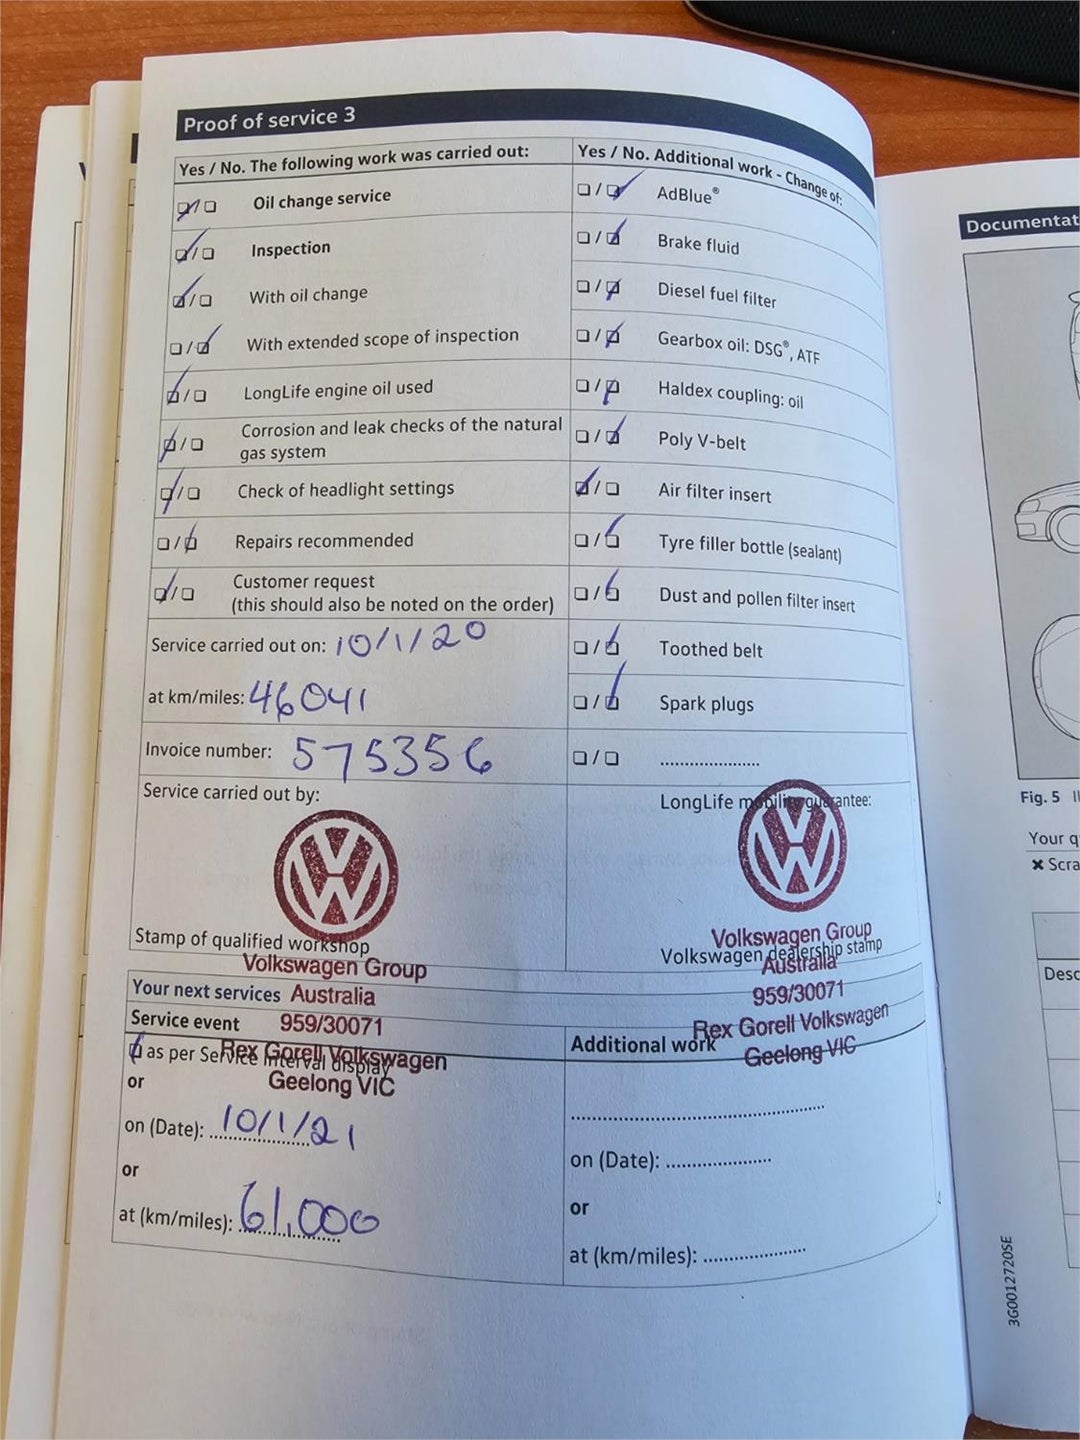 Proof of service 3
Yes / No. The following work was carried out:
Oil change service
Inspection
With oil change
With extended scope of inspection
LongLife engine oil used
Corrosion and leak checks of the natural
gas system
Check of headlight settings
Repairs recommended
Customer request
(this should also be noted on the order)
Service carried out on: 10/1/20
at km/miles: 46041
Invoice number: 575356
Service carried out by:
Stamp of qualified workshop
Volkswagen Group
Australia
959/30071
Rex Gorell Volkswagen
Geelong VIC
Yes / No. Additional work - Change of:
AdBlue®
Brake fluid
Diesel fuel filter
Gearbox oil: DSG®, ATF
Haldex coupling: oil
Poly V-belt
Air filter insert
Tyre filler bottle (sealant)
Dust and pollen filter insert
Toothed belt
Spark plugs
LongLife mobility guarantee:
Volkswagen dealership stamp
Volkswagen Group
Australia
959/30071
Rex Gorell Volkswagen
Geelong VIC
Your next services
Service event
as per Service interval display
or
on (Date): 10/1/21
or
at (km/miles): 61,000
Additional work
on (Date):
or
at (km/miles):
Documentat
Fig. 5
Your q
✖ Scra
Desc
3G0012720SE